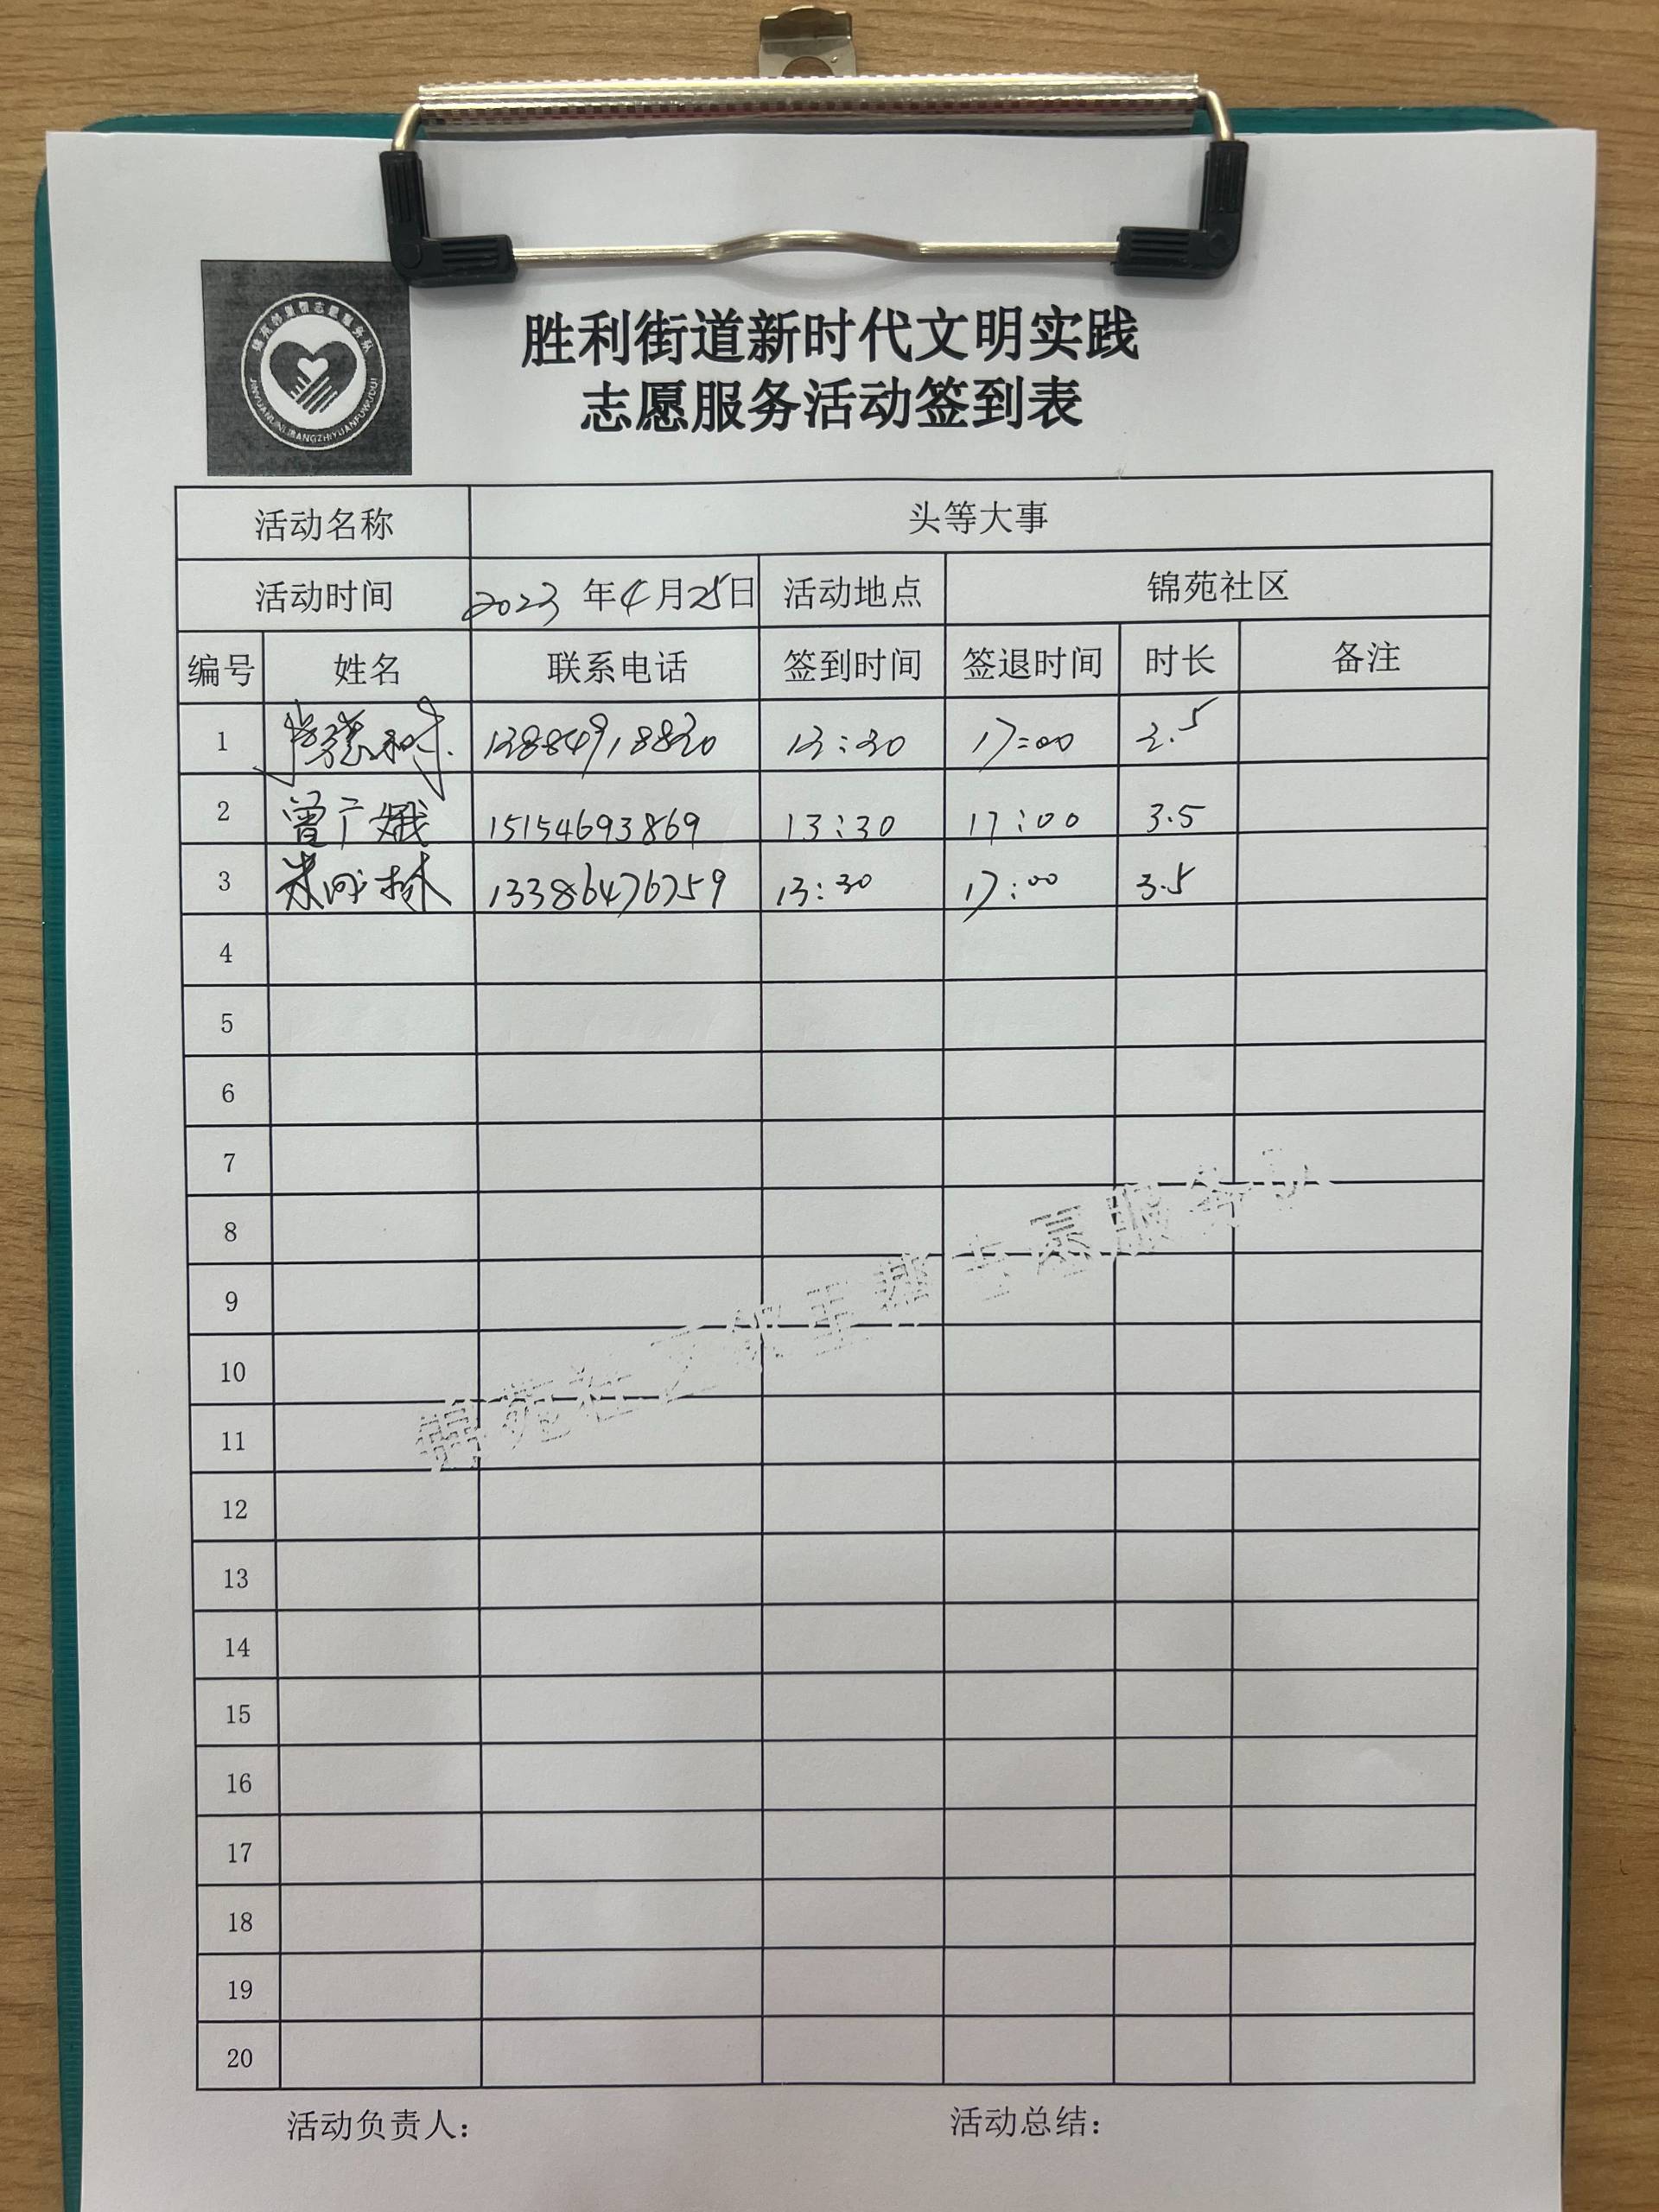 胜利街道新时代文明实践
志愿服务活动签到表
活动名称 头等大事
活动时间 2023 年 4 月 25 日 活动地点 锦苑社区
编号 姓名 联系电话 签到时间 签退时间 时长 备注
1 13884918830 13:30 17:00 3.5
2 曾广娥 15154693869 13:30 17:00 3.5
3 13386476759 13:30 17:00 3.5
4
5
6
7
8
9
10
11
12
13
14
15
16
17
18
19
20
锦苑社区邻里帮志愿服务队
活动负责人: 活动总结: